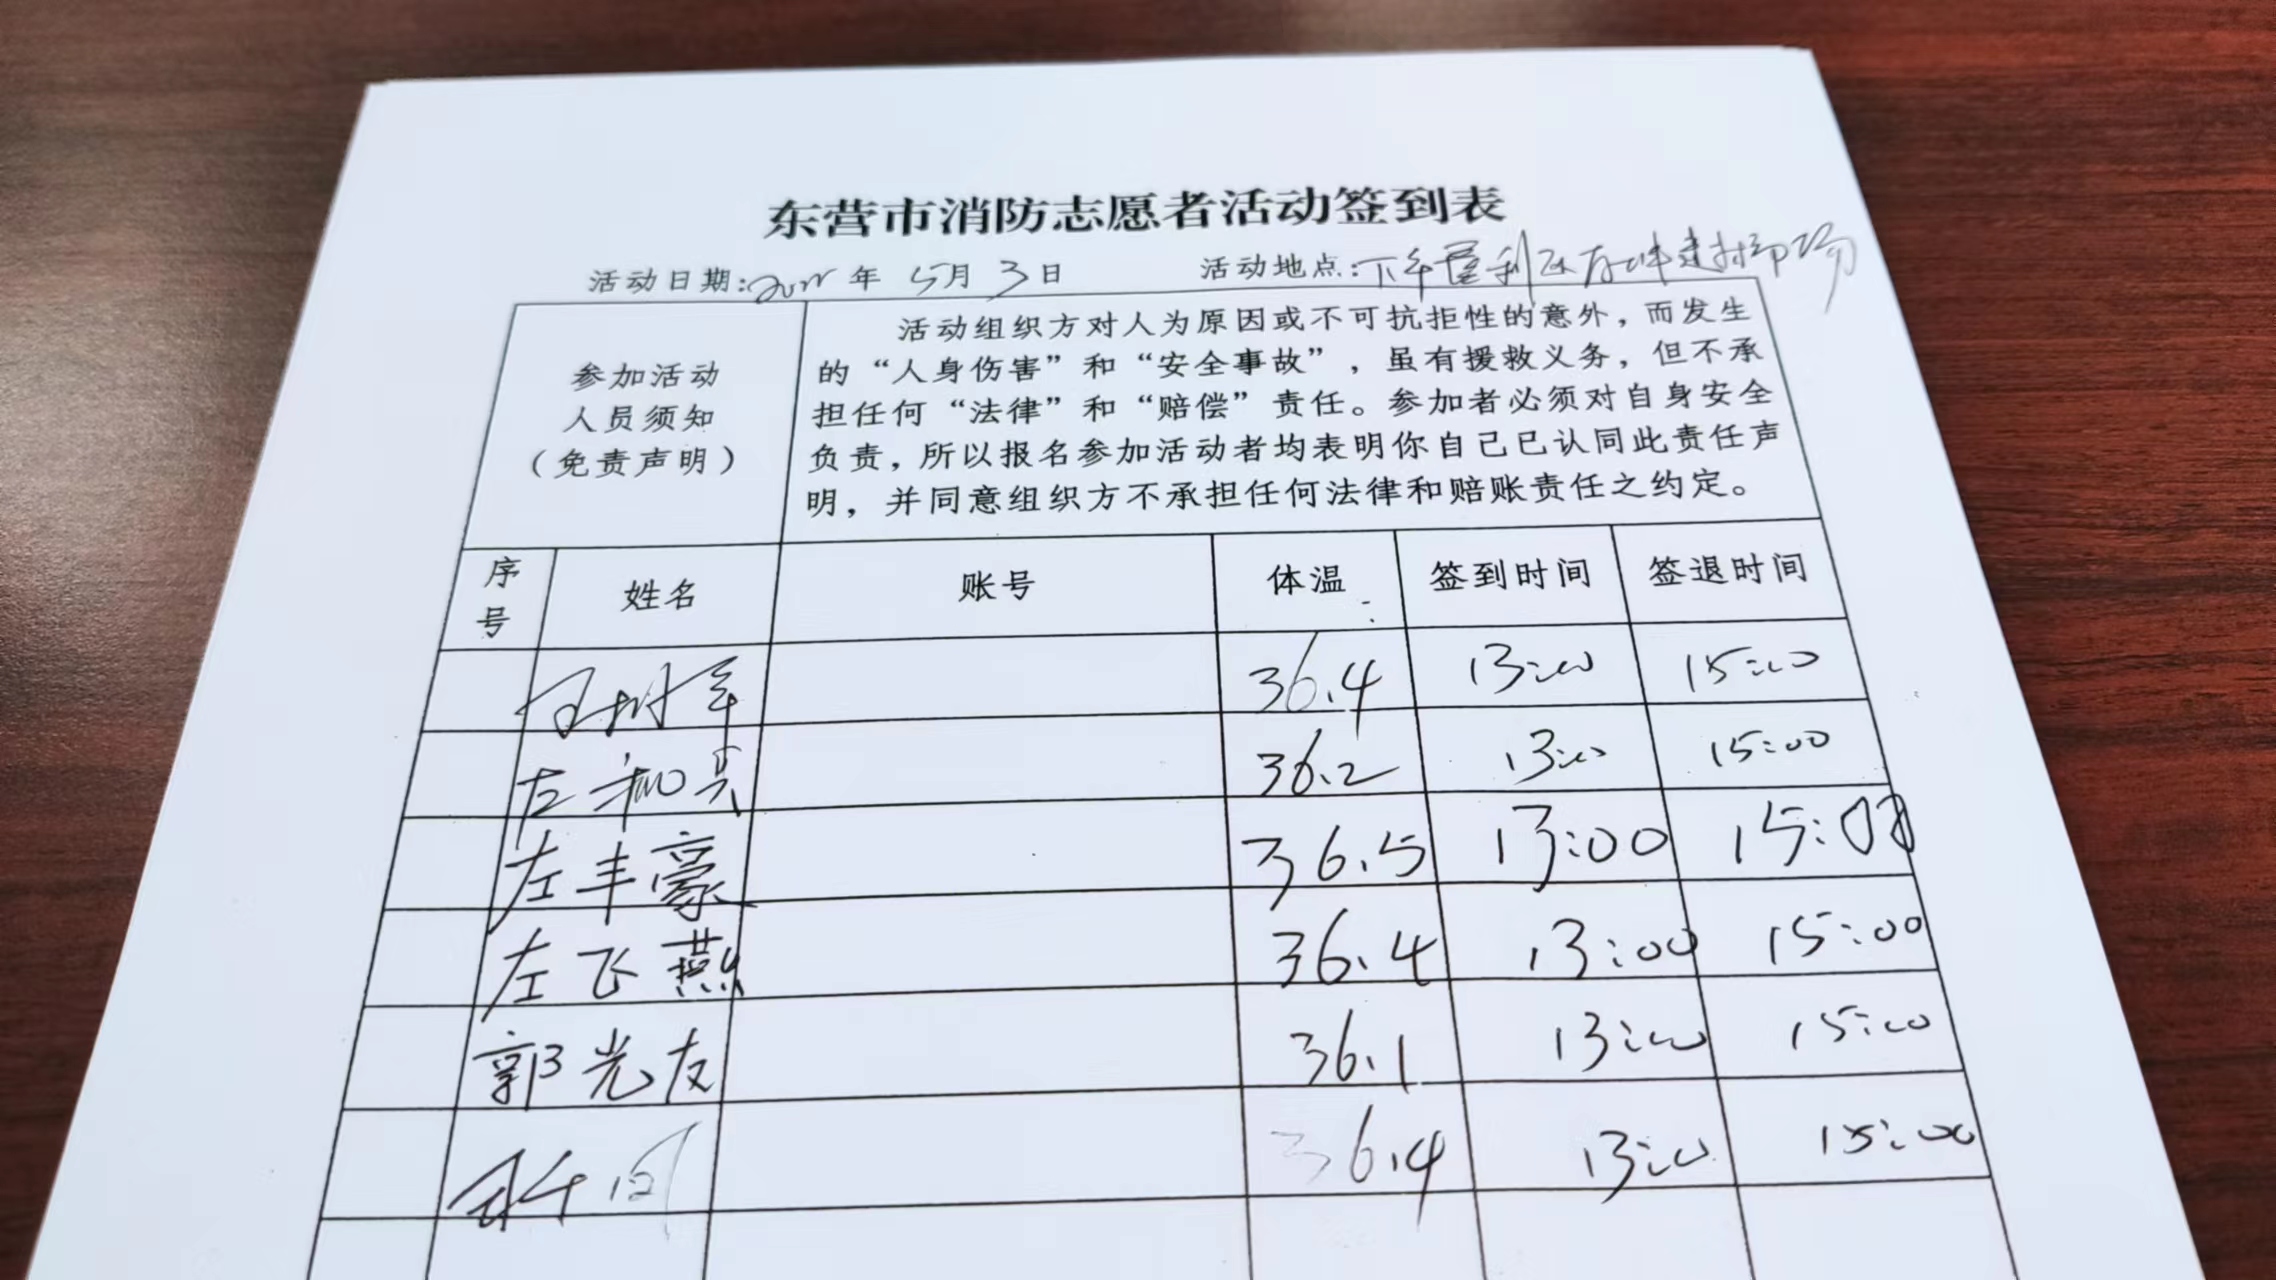 东营市消防志愿者活动签到表
活动日期: 年 5月 3日 活动地点:
参加活动
人员须知
（免责声明）
活动组织方对人为原因或不可抗拒性的意外，而发生
的“人身伤害”和“安全事故”，虽有援救义务，但不承
担任何“法律”和“赔偿”责任。参加者必须对自身安全
负责，所以报名参加活动者均表明你自己已认同此责任声
明，并同意组织方不承担任何法律和赔账责任之约定。
序号 姓名 账号 体温 签到时间 签退时间
36.4 13:00 15:00
36.2 13:00 15:00
左丰豪 36.5 13:00 15:00
左飞燕 36.4 13:00 15:00
郭光友 36.1 13:00 15:00
36.4 13:00 15:00